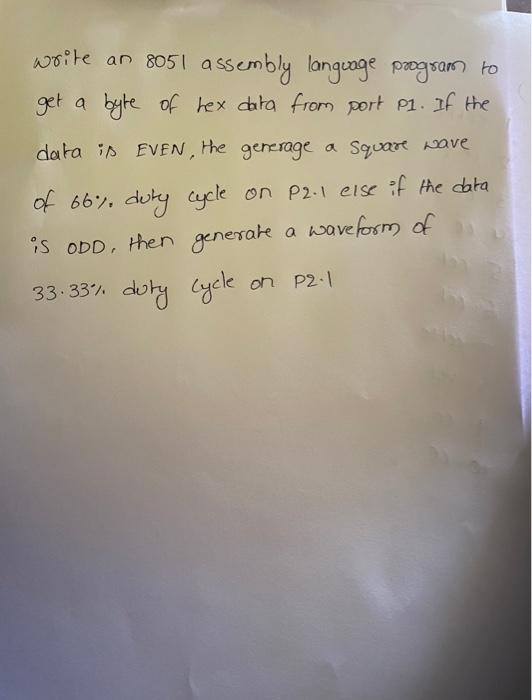 write an 8051 assembly language program to
get a byte of hex data from port P1. If the
data is EVEN, the generage a square wave
of 66%. duty cycle on P2.1 else if the data
is ODD, then generate a waveform of
33.33%. duty cycle on P2.1